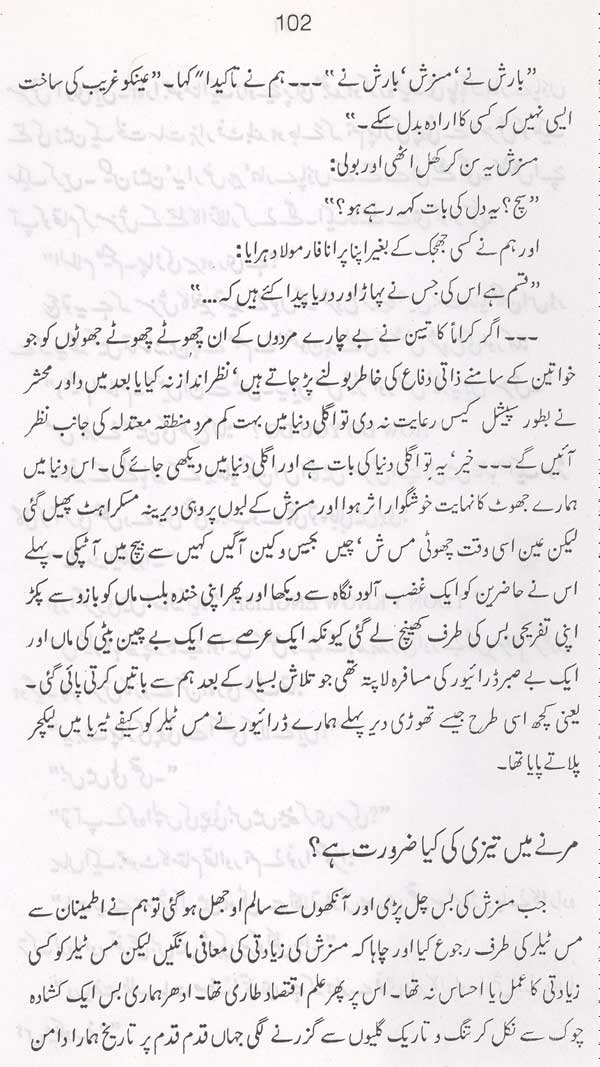 102
”بارش نے‘ مسزش‘ بارش نے“ ۔۔۔ ہم نے تاکیداً کہا۔ ”عینکو غریب کی ساخت
ایسی نہیں کہ کسی کا ارادہ بدل سکے۔“
مسزش یہ سن کر کھل اٹھی اور بولی:
”سچ؟ یہ دل کی بات کہہ رہے ہو؟“
اور ہم نے کسی جھجک کے بغیر اپنا پرانا فارمولا دہرایا:
”قسم ہے اس کی جس نے پہاڑ اور دریا پیدا کئے ہیں کہ...“
۔۔۔ اگر کراماً کاتبین نے بے چارے مردوں کے ان چھوٹے چھوٹے جھوٹوں کو جو
خواتین کے سامنے ذاتی دفاع کی خاطر بولنے پڑ جاتے ہیں‘ نظر انداز نہ کیا یا بعد میں داور محشر
نے بطور سپیشل کیس رعایت نہ دی تو اگلی دنیا میں بہت کم مرد منطقہ معتدلہ کی جانب نظر
آئیں گے ۔۔۔ خیر‘ یہ تو اگلی دنیا کی بات ہے اور اگلی دنیا میں دیکھی جائے گی۔ اس دنیا میں
ہمارے جھوٹ کا نہایت خوشگوار اثر ہوا اور مسزش کے لبوں پر وہی دیرینہ مسکراہٹ پھیل گئی
لیکن عین اسی وقت چھوٹی مس ش‘ چیں بجبیں و کین آگیں کہیں سے بیچ میں آ ٹپکی۔ پہلے
اس نے حاضرین کو ایک غضب آلود نگاہ سے دیکھا اور پھر اپنی خندہ بلب ماں کو بازو سے پکڑ
اپنی تفریحی بس کی طرف کھینچ لے گئی کیونکہ ایک عرصے سے ایک بے چین بیٹی کی ماں اور
ایک بے صبر ڈرائیور کی مسافرہ لاپتہ تھی جو تلاش بسیار کے بعد ہم سے باتیں کرتی پائی گئی۔
یعنی کچھ اسی طرح جیسے تھوڑی دیر پہلے ہمارے ڈرائیور نے مس ٹیلر کو کیفے ٹیریا میں لیکچر
پلاتے پایا تھا۔
مرنے میں تیزی کی کیا ضرورت ہے؟
جب مسزش کی بس چل پڑی اور آنکھوں سے سالم اوجھل ہو گئی تو ہم نے اطمینان سے
مس ٹیلر کی طرف رجوع کیا اور چاہا کہ مسزش کی زیادتی کی معافی مانگیں لیکن مس ٹیلر کو کسی
زیادتی کا عمل یا احساس نہ تھا۔ اس پر پھر علم اقتصاد طاری تھا۔ ادھر ہماری بس ایک کشادہ
چوک سے نکل کر تنگ و تاریک گلیوں سے گزرنے لگی جہاں قدم قدم پر تاریخ ہمارا دامن